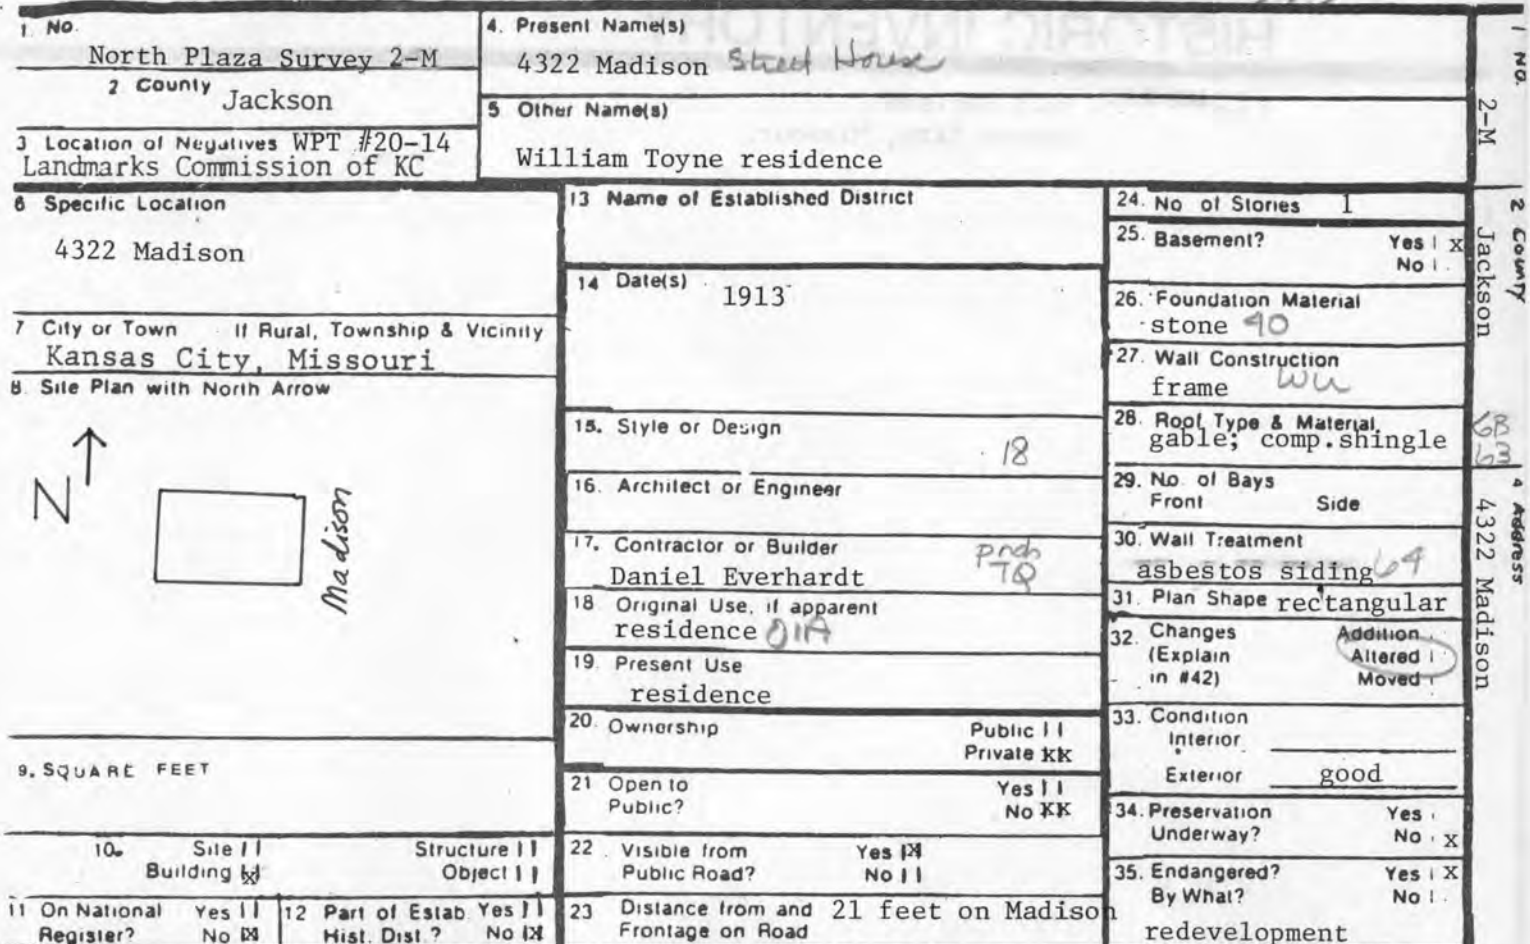 1. No.
North Plaza Survey 2-M
2. County
Jackson
3 Location of Negatives WPT #20-14
Landmarks Commission of KC
4. Present Name(s)
4322 Madison Street House
5 Other Name(s)
William Toyne residence
6 Specific Location
4322 Madison
7 City or Town If Rural, Township & Vicinity
Kansas City, Missouri
8. Site Plan with North Arrow
N
Madison
9. SQUARE FEET
10. Site
Structure
Building X
Object
11 On National Register? Yes
No X
12 Part of Estab Hist. Dist.? Yes
No X
13 Name of Established District
14 Date(s)
1913
15. Style or Design
18
16. Architect or Engineer
17. Contractor or Builder
Daniel Everhardt
TQ
18 Original Use, if apparent
residence 01A
19. Present Use
residence
20. Ownership
Public
Private XX
21 Open to
Public?
Yes
No XX
22 Visible from
Public Road?
Yes X
No
23 Distance from and 21 feet on Madison
Frontage on Road
24. No of Stories 1
25. Basement?
Yes X
No
26. Foundation Material
stone 40
27. Wall Construction
frame
28. Roof Type & Material
gable; comp.shingle
29. No. of Bays
Front Side
30. Wall Treatment
asbestos siding 64
31. Plan Shape rectangular
32. Changes
(Explain
in #42)
Addition
Altered
Moved
33. Condition
Interior
Exterior good
34. Preservation
Underway?
Yes
No X
35. Endangered?
By What?
Yes X
No
redevelopment
1 NO.
2-M
2 County
Jackson
4 Address
4322 Madison
HISTORIC INVENTORY